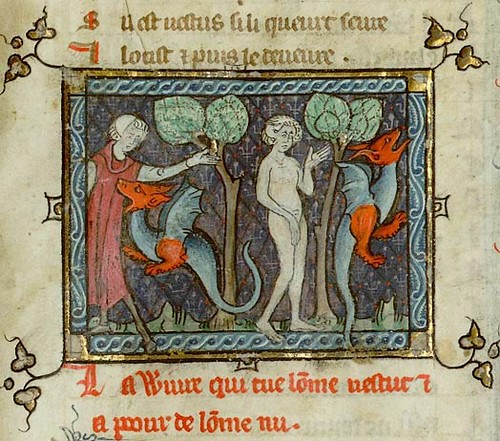 S il est uestus si li queurt seure
I locist ⁊ puis le deueure .
La Wiure qui tue lōme uestut ⁊
a pour de lōme nu.